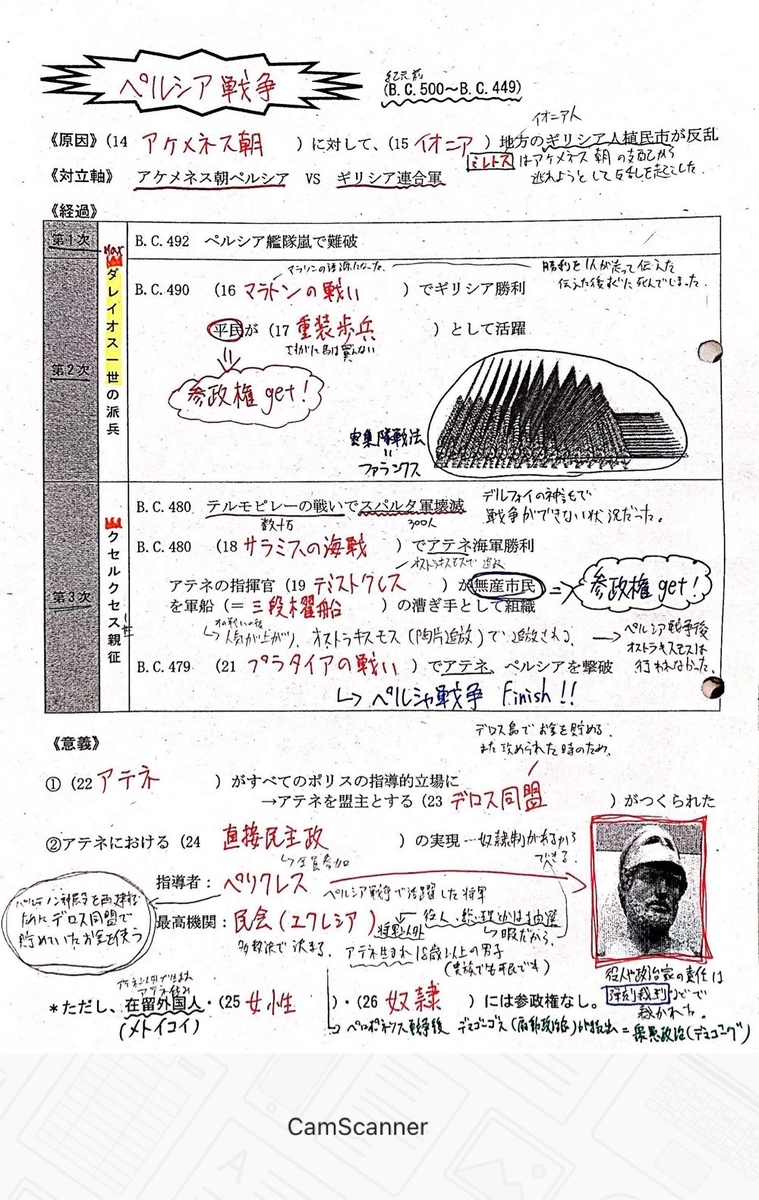 ペルシア戦争
紀元前
(B.C.500～B.C.449)
イオニア人
《原因》(14 アケメネス朝 )に対して、(15 イオニア )地方のギリシア人植民市が反乱
ミレトスはアケメネス朝の支配から
逃れようとして反乱を起こした.
《対立軸》 アケメネス朝ペルシア VS ギリシア連合軍
《経過》
第1次
B.C.492 ペルシア艦隊嵐で難破
ダレイオス一世の派兵
マラソンの語源になった.
勝利を1人が走って伝えた
伝えた後すぐに死んでしまった.
第2次
B.C.490 (16 マラトンの戦い )でギリシア勝利
平民が (17 重装歩兵 )として活躍
さすがに馬は買えない
参政権 get!
密集隊戦法
ファランクス
第3次
クセルクセス親征
B.C.480 テルモピレーの戦いでスパルタ軍壊滅
数十万 300人
デルフォイの神託で
戦争ができない状況だった。
B.C.480 (18 サラミスの海戦 )でアテネ海軍勝利
オストラキスモスで追放
アテネの指揮官 (19 テミストクレス )が無産市民
を軍船 (＝ 三段櫂船 )の漕ぎ手として組織
参政権 get!
その戦いの後
人気が上がり、オストラキスモス(陶片追放)で追放される.
→ペルシア戦争後
オストラキスモスは
行われなかった.
B.C.479 (21 プラタイアの戦い )でアテネ、ペルシアを撃破
↳ペルシャ戦争 Finish!!
《意義》
デロス島でお金を貯める.
また攻められた時のため.
① (22 アテネ )がすべてのポリスの指導的立場に
→アテネを盟主とする (23 デロス同盟 )がつくられた
②アテネにおける (24 直接民主政 )の実現…奴隷制があるから
できる.
↳全員参加
指導者： ペリクレス
ペルシア戦争で活躍した将軍
パルテノン神殿を再建する
ためにデロス同盟で
貯めていたお金を使う
最高機関：民会(エクレシア)
将軍以外
役人・総理とかは抽選
↳暇だから.
多数決で決まる. アテネ生まれ 18歳以上の男子
(貴族でも平民でも)
役人や政治家の責任は
弾劾裁判などで
裁かれた.
＊ただし、在留外国人・(25 女性 )・(26 奴隷 )には参政権なし。
(メトイコイ)
↳ペロポネソス戦争後 デマゴーゴス(扇動政治家)が出た＝衆愚政治(デマゴーグ)
CamScanner